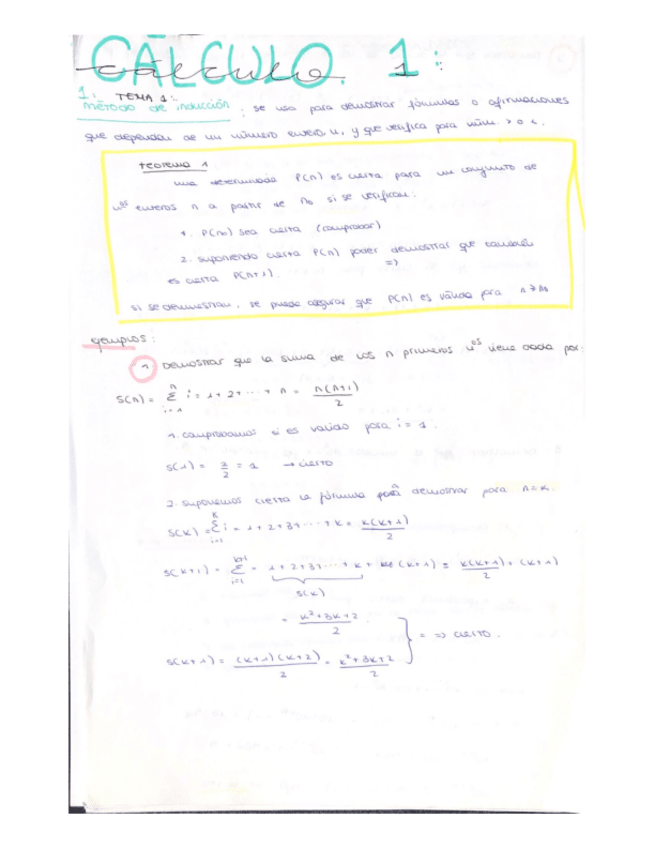 CÁLCULO. 1:
cálculo
1: TEMA 1:
Método de inducción: se usa para demostrar fórmulas o afirmaciones
que dependen de un número entero n, y que verifica para núm > 0
Teorema 1
una determinada P(n) es cierta para un conjunto de
nos enteros n a partir de no si se verifican:
1. P(no) sea cierta (comprobar)
2. suponiendo cierta P(n) poder demostrar que también
=>
es cierta P(n+1).
si se demuestran, se puede asegurar que P(n) es válida para n ≥ no
Ejemplos:
1 Demostrar que la suma de los n primeros nos viene dada por:
S(n) = Σ i = 1 + 2 + ... + n = n(n+1)/2
1. comprobamos si es válido para i = 1.
S(1) = 2/2 = 1 → cierto
2. suponemos cierta la fórmula para demostrar para n=k.
S(k) = Σ i = 1 + 2 + 3 + ... + k = k(k+1)/2
S(k+1) = Σ = 1 + 2 + 3 + ... + k + (k+1) = k(k+1)/2 + (k+1)
S(k)
= k²+3k+2/2
S(k+1) = (k+1)(k+2)/2 = k²+3k+2/2 } = => cierto.